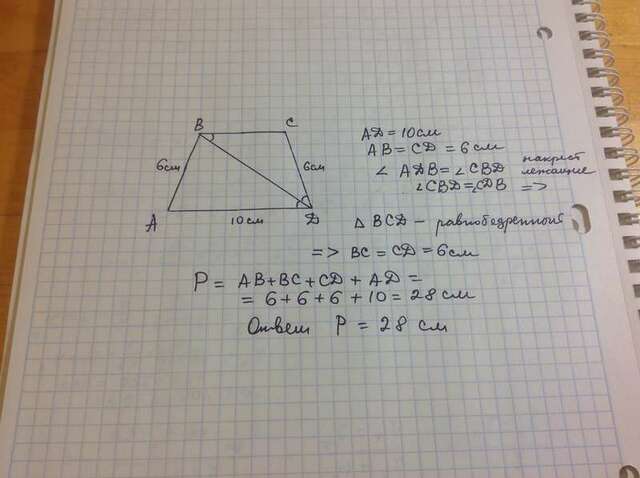 B C
6см 6см
A 10см D
AD = 10см
AB = CD = 6см
∠ ADB = ∠CBD накрест лежащие
∠CBD = ∠CDB =>
△ BCD – равнобедренный
=> BC = CD = 6см
P = AB + BC + CD + AD =
= 6 + 6 + 6 + 10 = 28 см
Ответ P = 28 см